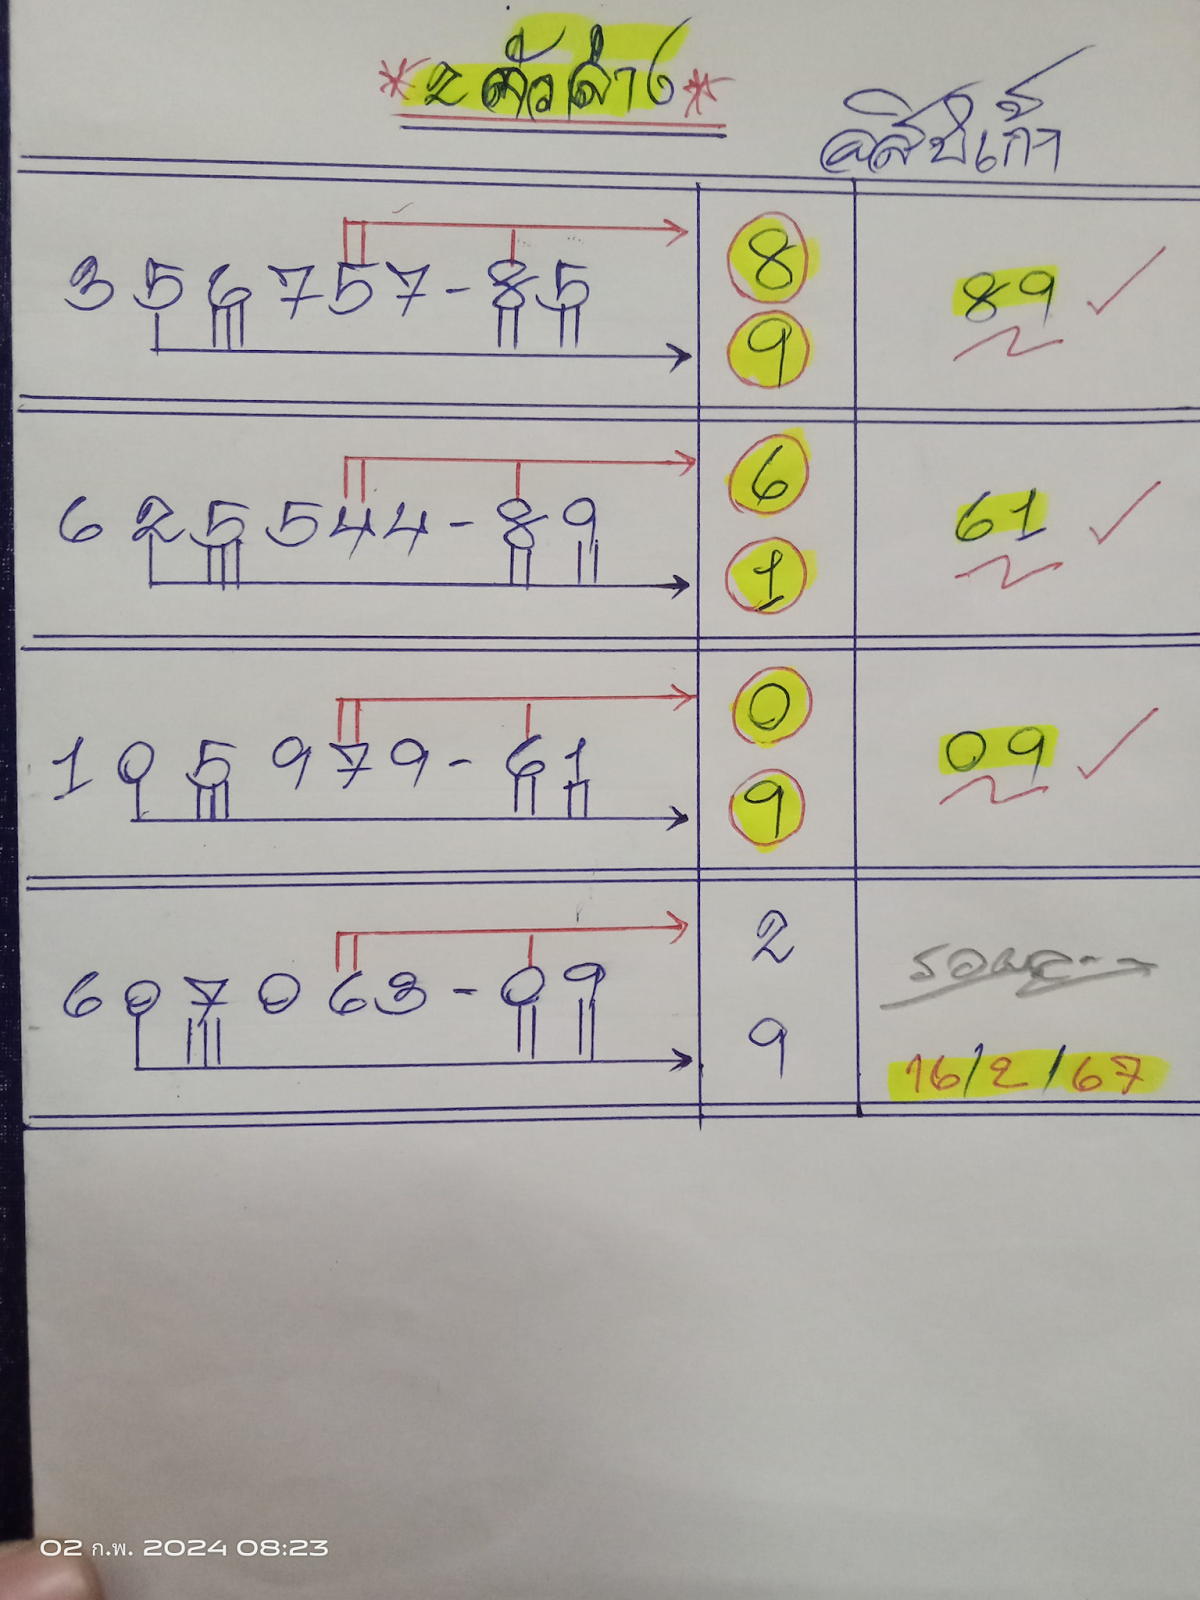 *2 ตัวล่าง*
3 5 6 7 5 7 - 8 5
8
9
89
6 2 5 5 4 4 - 8 9
6
1
61
1 0 5 9 7 9 - 6 1
0
9
09
6 0 7 0 6 3 - 0 9
2
9
16/2/67
02 ก.พ. 2024 08:23